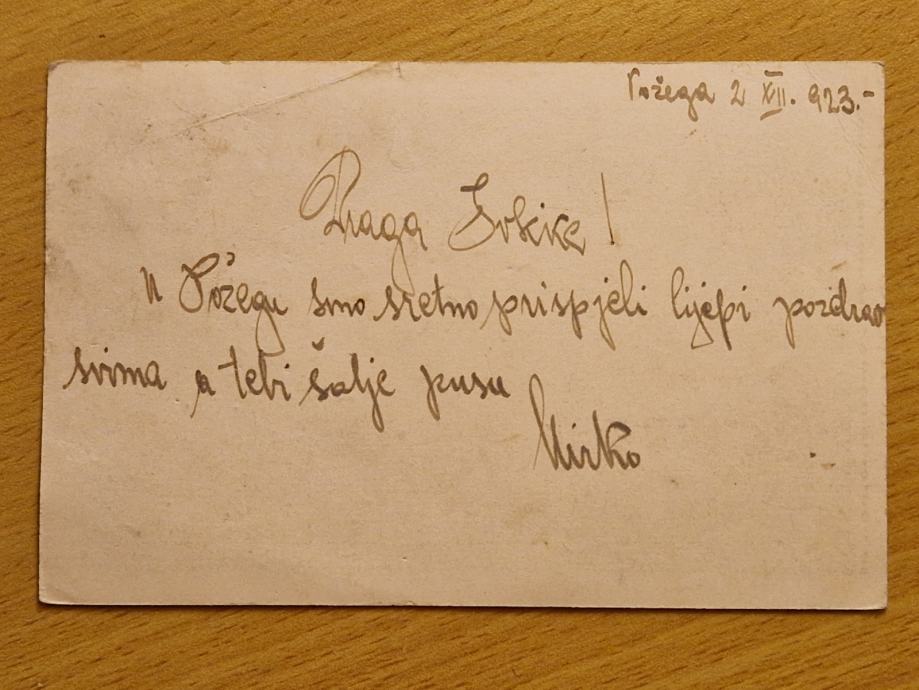 Požega 2 XII. 923.-
Draga
u Požegu smo sretno prispjeli lijepi pozdrav
svima a tebi šalje pusu
Mirko